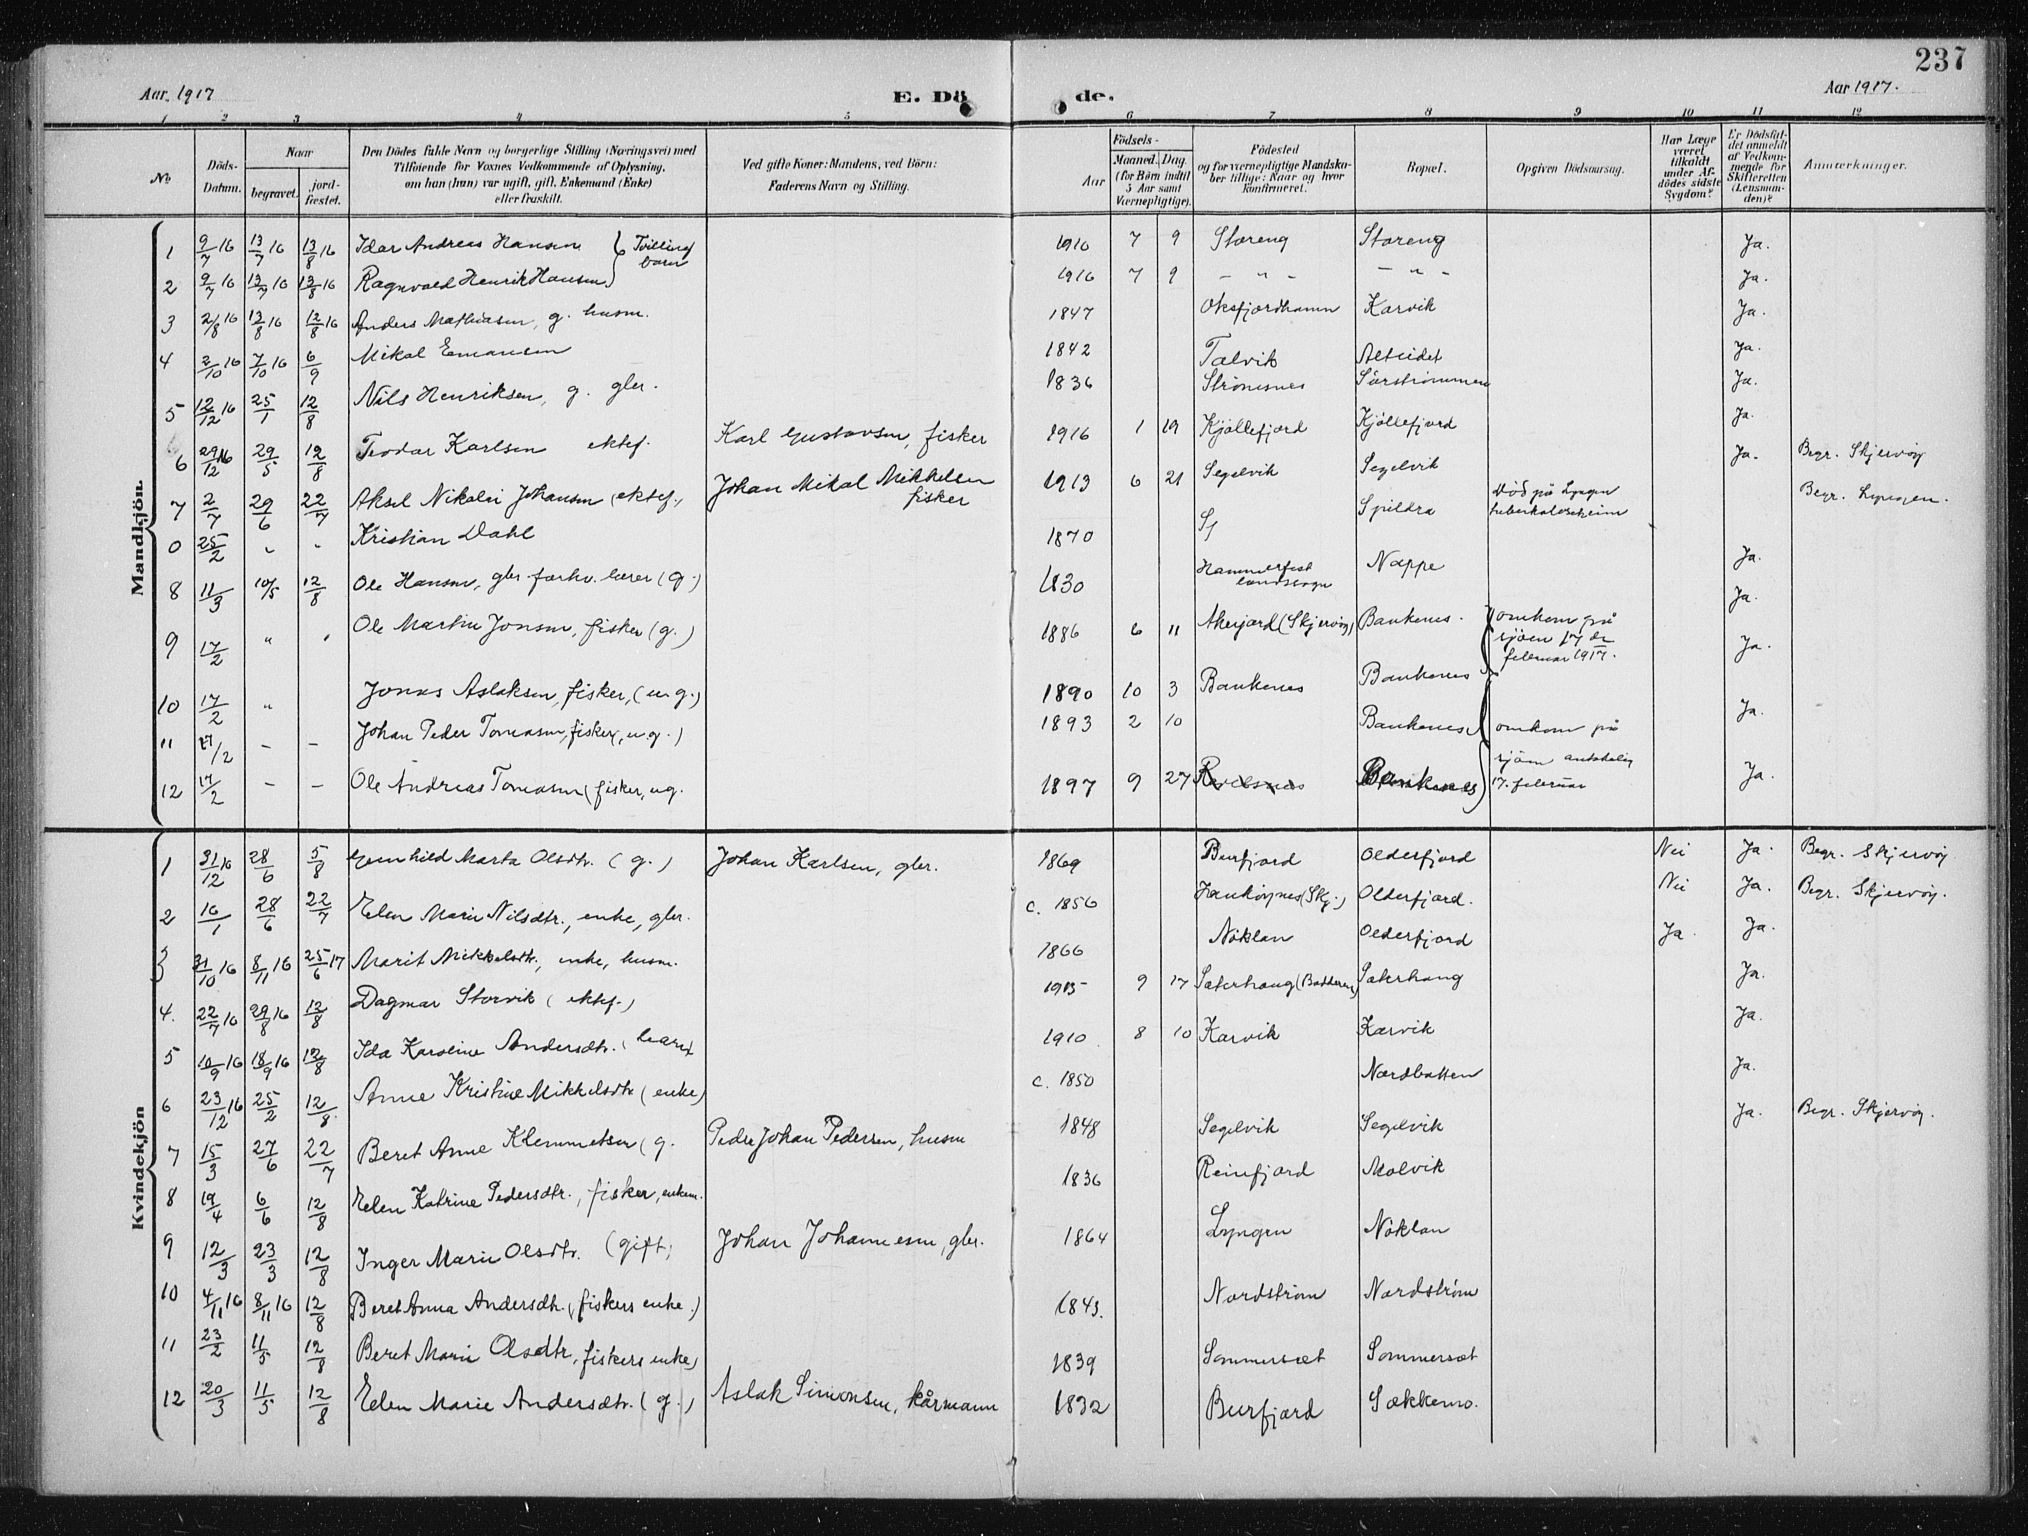 237
Aar. 1917 E. Dö de. Aar 1917.
1 2 3 4 5 6 7 8 9 10 11 12
No
Döds-Datum.
Naar
begravet.
jord-fæstet.
Den Dödes fulde Navn og borgerlige Stilling (Næringsvei) med
Tilföiende for Voxnes Vedkommende af Oplysning,
om han (hun) var ugift, gift, Enkemand (Enke)
eller fraskilt.
Ved gifte Koner: Mandens, ved Börn:
Faderens Navn og Stilling.
Födsels-
Aar
Maaned. Dag.
(for Börn indtil
5 Aar samt
Værnepligtige).
Födested
og for værnepligtige Mandska-
ber tillige: Naar og hvor
konfirmeret.
Bopæl.
Opgiven Dödsaarsag.
Har Læge
været
tilkaldt
under Af-
dödes sidste
Sygdom?
Er Dödsfal-
det anmeldt
af Vedkom-
mende for
Skifteretten
(Lensman-
den)?
Anmærkninger.
Mandkjön.
1 9/7 16 13/7 16 13/8 16 Idar Andreas Hansen } Tvilling barn 1916 7 9 Storeng Storeng Ja.
2 9/7 16 13/7 16 13/8 16 Ragnvald Henrik Hansen 1916 7 9 - " - - " - Ja.
3 2/8 16 13/8 16 12/8 16 Anders Mathiasen, g. husm. 1847 Oksfjordhamn Karvik Ja.
4 2/10 16 7/10 16 6/9 Mikal Emansen 1842 Talvik Alteidet Ja.
5 12/12 16 25/1 12/8 Nils Henriksen, g. gbr. 1836 Strömsnes Sörströmmen Ja.
6 29/12 16 29/5 12/8 Teodor Karlsen ektef. Karl Gustavsen, fisker 1916 1 19 Kjöllefjord Kjöllefjord Ja.
7 2/7 29/6 22/7 Aksel Nikolai Johansen (ektef., Johan Mikal Mikkelsen fisker 1913 6 21 Segelvik Segelvik Ja. Begr. Skjervöy
0 25/2 " - Kristian Dahl 1870 Sp Spildra Död på Lyngen tuberkuloseheim Begr. Lyngen.
8 11/3 10/5 12/8 Ole Hansen, gbr forhv. lærer (g.) 1830 Hammerfest landsogn Nappe Ja.
9 17/2 " ' Ole Martin Jonsen, fisker (g.) 1886 6 11 Akerjord (Skjervöy) Bankenes. omkom på sjöen 17 de februar 1917. Ja.
10 17/2 " Jonas Aslaksen, fisker, (u.g.) 1890 10 3 Bankenes Bankenes Ja.
11 17/2 - - Johan Peder Tomasen, fisker, u.g.) 1893 2 10 Bankenes omkom på Ja.
12 17/2 - - Ole Andreas Tomasen (fisker, ug. 1897 9 27 Bankenes sjöen antakelig 17. februar Ja.
Kvindekjön
1 31/12 16 28/6 5/8 Gunhild Marta Olsdtr. (g.) Johan Karlsen, gbr. 1869 Burfjord Olderfjord Nei Ja. Begr. Skjervöy
2 16/1 28/6 22/7 Elen Marie Nilsdtr., enke, gbr. c. 1856 Haukøynes (Skj.) Olderfjord. Nei Ja. Begr. Skjervöy.
3 31/10 16 8/11 16 25/6 17 Marit Mikkelsdtr., enke, husm. 1866 Nöklan Olderfjord Ja. Ja.
4. 22/7 16 29/8 16 12/8 Dagmar Storvik (ektef.) 1915 9 17 Sæterhaug (Badderen) Sæterhaug Ja.
5 10/9 16 18/9 16 12/8 Ida Karoline Andersdtr. 1910 8 10 Karvik Karvik Ja.
6 23/12 16 25/2 12/8. Anne Kristine Mikkelsdtr (enke) c. 1850 Nordbotten Ja.
7 15/3 27/6 22/7 Beret Anne Klemmetsen (g. Peder Johan Pedersen, husm 1848 Segelvik Segelvik Ja. Begr. Skjervöy.
8 19/4 6/6 12/8 Elen Katrine Pedersdtr., fisker, enkem. 1836 Reinfjord Molvik
9 12/3 23/3 12/8 Inger Marie Olsdtr. (gift, Johan Johannesen, gbr. 1864 Lyngen Nöklan
10 4/11 16 8/11 16 12/8 Beret Anna Andersdtr. (fiskers enke.) 1843. Nordström Nordström
11 23/2 11/5 12/8 Beret Marie Olsdtr, fiskers enke) 1839 Sommersæt Sommersæt
12 20/3 11/5 12/8 Elen Marie Andersdtr. (g.) Aslak Simonsen, kårmann 1832 Burfjord Sakkemo.